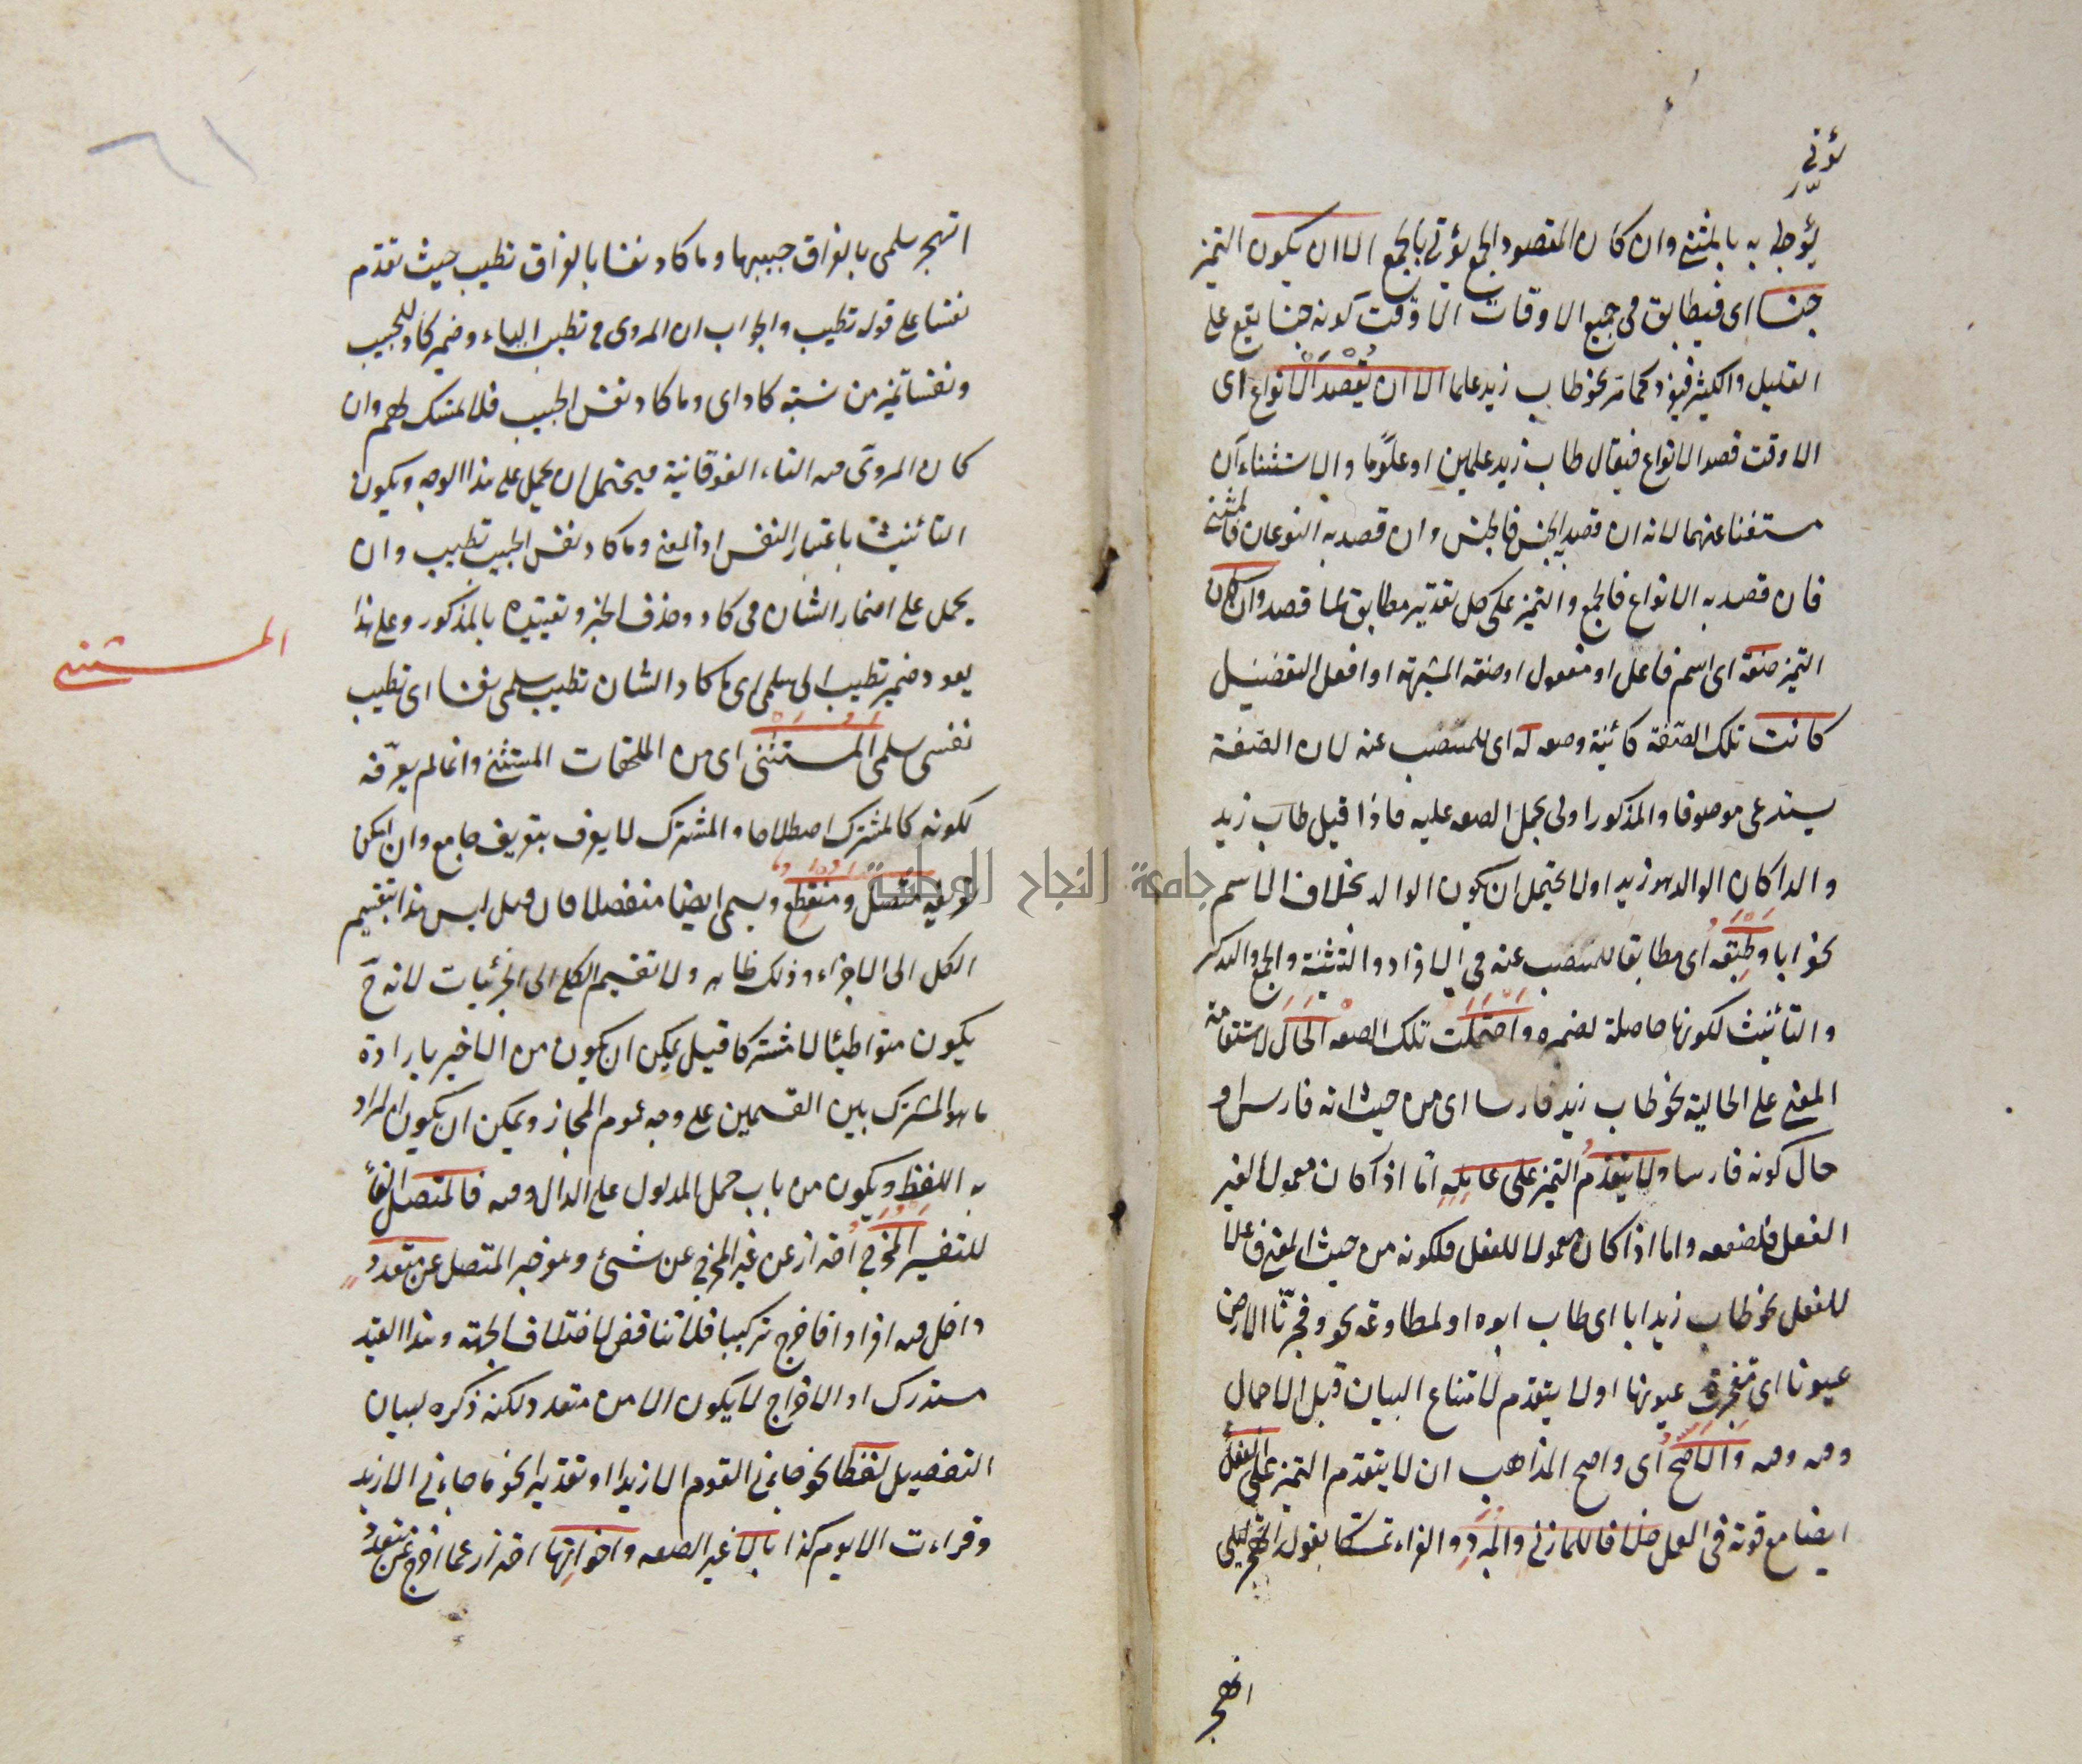 يؤتى
يؤجل به بالمثنى وان كان المقصود الجمع يؤتى بالجمع الا ان يكون التميز
جنسا اى فيطابق فى جميع الاوقات الا وقت كونه جنسا يقع على
القليل والكثير فيفرد كما مر نحو طاب زيد علما الا ان يقصد الانواع اى
الا وقت قصد الانواع فيقال طاب زيد علمين او علوما والاستثناءان
مستغنا عنهما لانه ان قصد الجنس فالجنس وان قصد به النوعان فالمثنى
فان قصد به الانواع فالجمع والتميز على كل تقدير مطابق لما قصد وان كان
التميز صفة اى اسم فاعل او مفعول او صفة المشبهة او افعل التفضيل
كانت تلك الصفة كائنة وصفه له اى للمنتصب عنه لان الصفة
يستدعى موصوفا والمذكور اولى بحمل الصفه عليه فاذا قيل طاب زيد
والدا كان الوالد هو زيد اولا يحتمل ان يكون الوالد بخلاف الاسم
نحو ابا وطبقه اى مطابقا للمنتصب عنه فى الافراد والتثنية والجمع والتذكير
والتأنيث لكونها حاملة لضميره واحتملت تلك الصفه الحال لاستقامة
المعنى على الحالية نحو طاب زيد فارسا اى من حيث انه فارس او
حال كونه فارسا ولا يتقدم التميز على عامله اما اذا كان معمولا لغير
الفعل فلضعفه واما اذا كان معمولا للفعل فلكونه من حيث المعنى فاعلا
للفعل نحو طاب زيد ابا اى طاب ابوه او لمطاوعه نحو وفجرنا الارض
عيونا اى تفجرت عيونها اولا يتقدم لامتناع البيان قبل الاجمال
وفيه وفيه والاصح اى واصح المذاهب ان لا يتقدم التميز على الفعل
ايضا مع قوته فى العمل خلافا للمازنى والمبرد والفراء تمسكا بقوله اتهجر ليلى
اتهجر
٦١
اتهجر سلمى بالفراق حبيبها وما كاد نفسا بالفراق تطيب حيث تقدم
نفسا على قوله تطيب والجواب ان المروى فى تطيب الياء وضمير كاد للحبيب
ونفسا تميز من نسبة كاد اى وما كاد نفس الحبيب فلا تمسك لهم وان
كان المروى فيه التاء الفوقانية فيحتمل ان يحمل على هذا الوجه ويكون
التأنيث باعتبار النفس اذ المعنى وما كاد نفس الحبيب تطيب وان
يحمل على اضمار الشان فى كاد وحذف الخبر وتقييده بالمذكور وعلى هذا
المستثنى
يعود ضمير تطيب الى سلمى اى ما كاد الشان تطيب سلمى نفسا اى تطيب
نفس سلمى المستثنى اى من الملحقات المستثنى وانما لم يعرفه
لكونه كالمشترك اصطلاحا والمشترك لا يعرف بتعريف جامع وان امكن
تعريفه متصل ومنقطع ويسمى ايضا منفصلا فان قيل ليس هذا بتقسيم
الكل الى الاجزاء وذلك ظاهر ولا تقسيم الكلى الى الجزئيات لانه ح
يكون متواطيئا لا مشتركا قيل يمكن ان يكون من الاخير بارادة
ما هو المشترك بين القسمين على وجه عموم المجاز ويمكن ان يكون المراد
به اللفظ ويكون من باب حمل المدلول على الدال وفيه فالمتصل الفاء
للتفسير المخرج احتراز عن غير المخرج عن شئ وعو خبر المتصل عن متعدد
داخل فيه افرادا فاخرج تركيبا فلا تناقض لاختلاف الجهة وهذا القيد
مستدرك اذ الاخراج لا يكون الا من متعدد لكنه ذكره لبيان
التفصيل لفظا نحو جاءنى القوم الا زيدا او تقديرا نحو ما جاءنى الا زيد
وقراءت الا يوم كذا بالا غير الصفه واخواتها احتراز عما اخرج عن متعدد
جامعة النجاح الوطنية